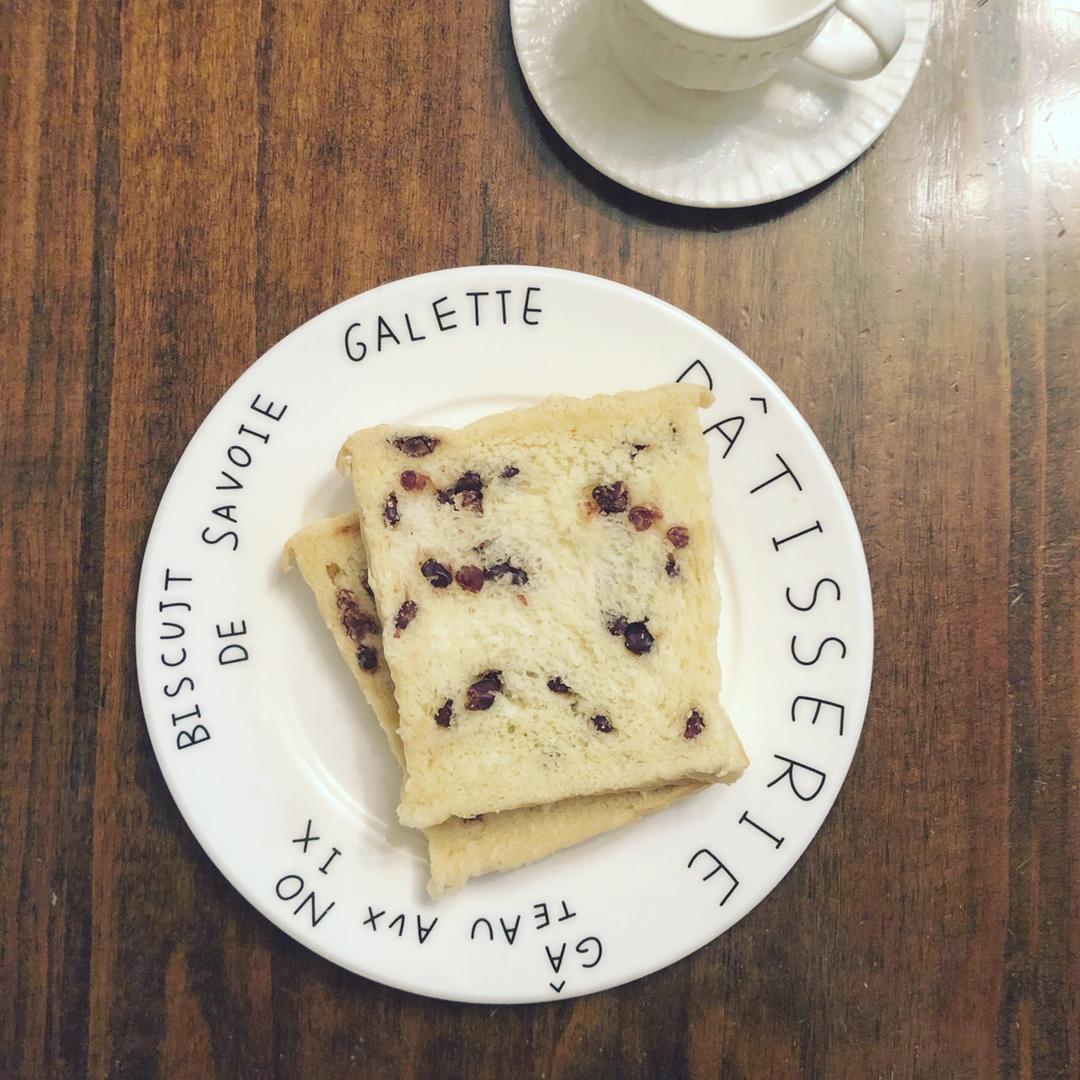 GALETTE
PÂTISSERIE
GÂ
TEAU AUX NO
IX
BISCUJT
DE SAVOIE